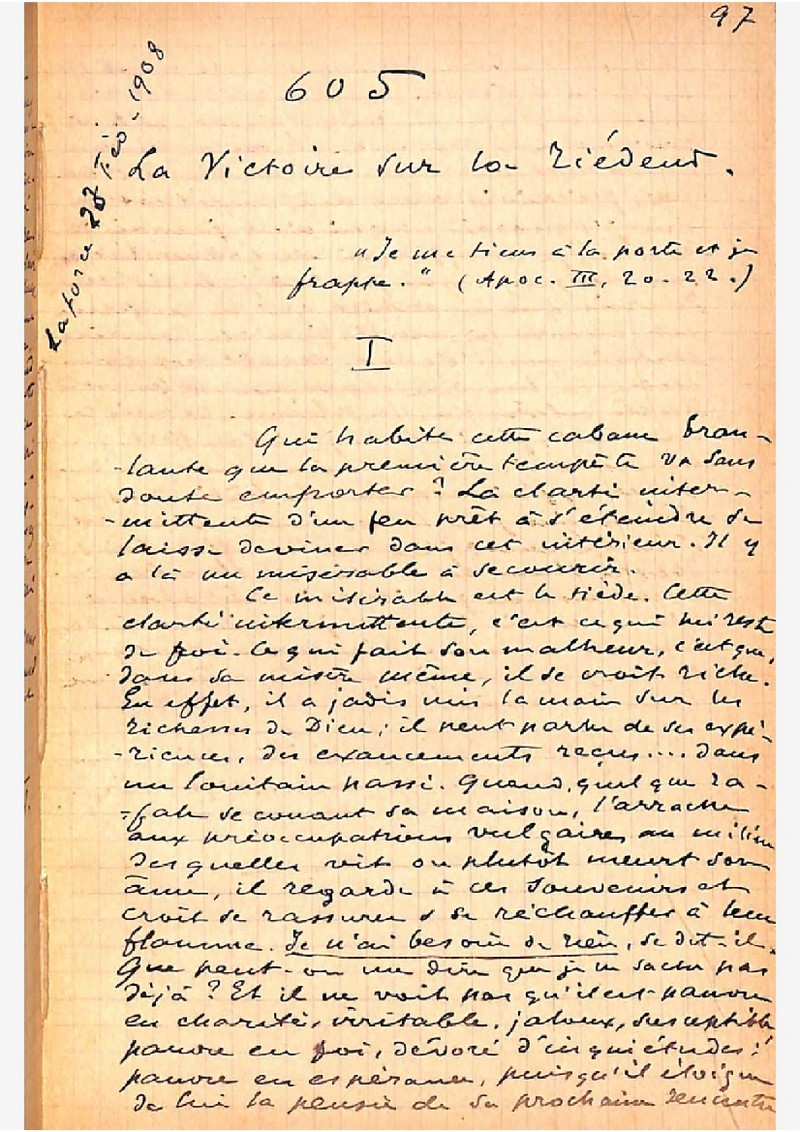 97
Laforce 23 Fév. 1908
605
La Victoire sur la Tiédeur.
"Je me tiens à la porte et je
frappe." (Apoc. III, 20-22.)
I
Qui habite cette cabane bran-
-lante que la première tempête va sans
doute emporter? La clarté inter-
-mittente d'un feu prêt à s'éteindre se
laisse deviner dans cet intérieur. Il y
a là un misérable à secourir.
Ce misérable est le tiède. Cette
clarté intermittente, c'est ce qui lui reste
de foi. Ce qui fait son malheur, c'est que,
dans sa misère même, il se croit riche.
En effet, il a jadis mis la main sur les
richesses de Dieu; il peut parler de ses expé-
-riences, des exaucements reçus... dans
un lointain passé. Quand, quelque ra-
-fale secouant sa maison, l'arrache
aux préoccupations vulgaires au milieu
desquelles vit ou plutôt meurt son
âme, il regarde à ces souvenirs et
croit se rassurer & se réchauffer à leur
flamme. Je n'ai besoin de rien, se dit-il.
Que peut-on me dire que je ne sache pas
déjà? Et il ne voit pas qu'il est pauvre
en charité, irritable, jaloux, susceptible
pauvre en foi, dévoré d'inquiétudes;
pauvre en espérance, puisqu'il éloigne
de lui la pensée de sa prochaine rencontre